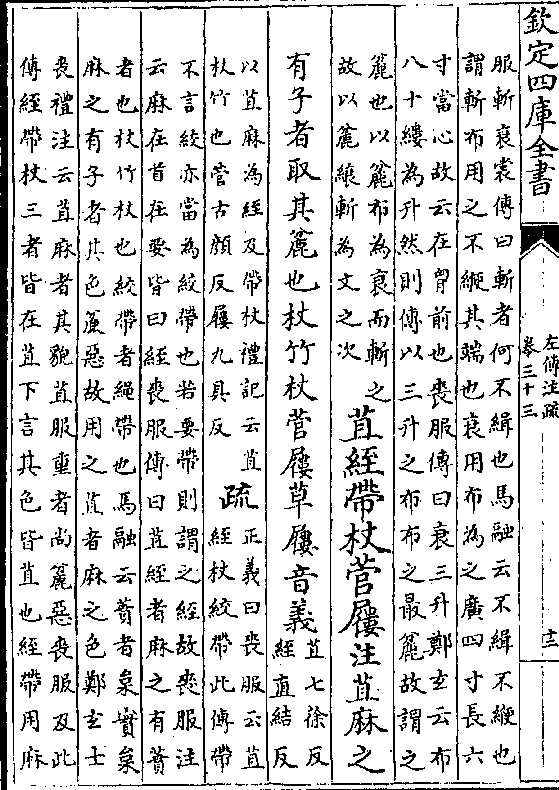 欽定四庫全書
左傳注疏
卷三十三
十二
服斬衰裳傳曰斬者何不緝也馬融云不緝不緶也
謂斬布用之不緶其端也衰用布為之廣四寸長六
寸當心故云在胷前也喪服傳曰衰三升鄭玄云布
八十縷為升然則傳以三升之布布之最麄故謂之
麄也以麄布為衰而斬之
故以麄縗斬為文之次
苴絰帶杖菅屨注苴麻之
有子者取其麄也杖竹杖菅屨草屨音義
苴七徐反
絰直結反
以苴麻為絰及帶杖禮記云苴
杖竹也菅古顔反屨九具反
疏
正義曰喪服云苴
絰杖絞帶此傳帶
不言絞亦當為絞帶也若要帶則謂之絰故喪服注
云麻在首在要皆曰絰喪服傳曰苴絰者麻之有蕡
者也杖竹杖也絞帶者繩帶也馬融云蕡者枲實枲
麻之有子者其色麄惡故用之苴者麻之色鄭玄士
喪禮注云苴麻者其貌苴服重者尚麄惡喪服及此
傳絰帶杖三者皆在苴下言其色皆苴也絰帶用麻